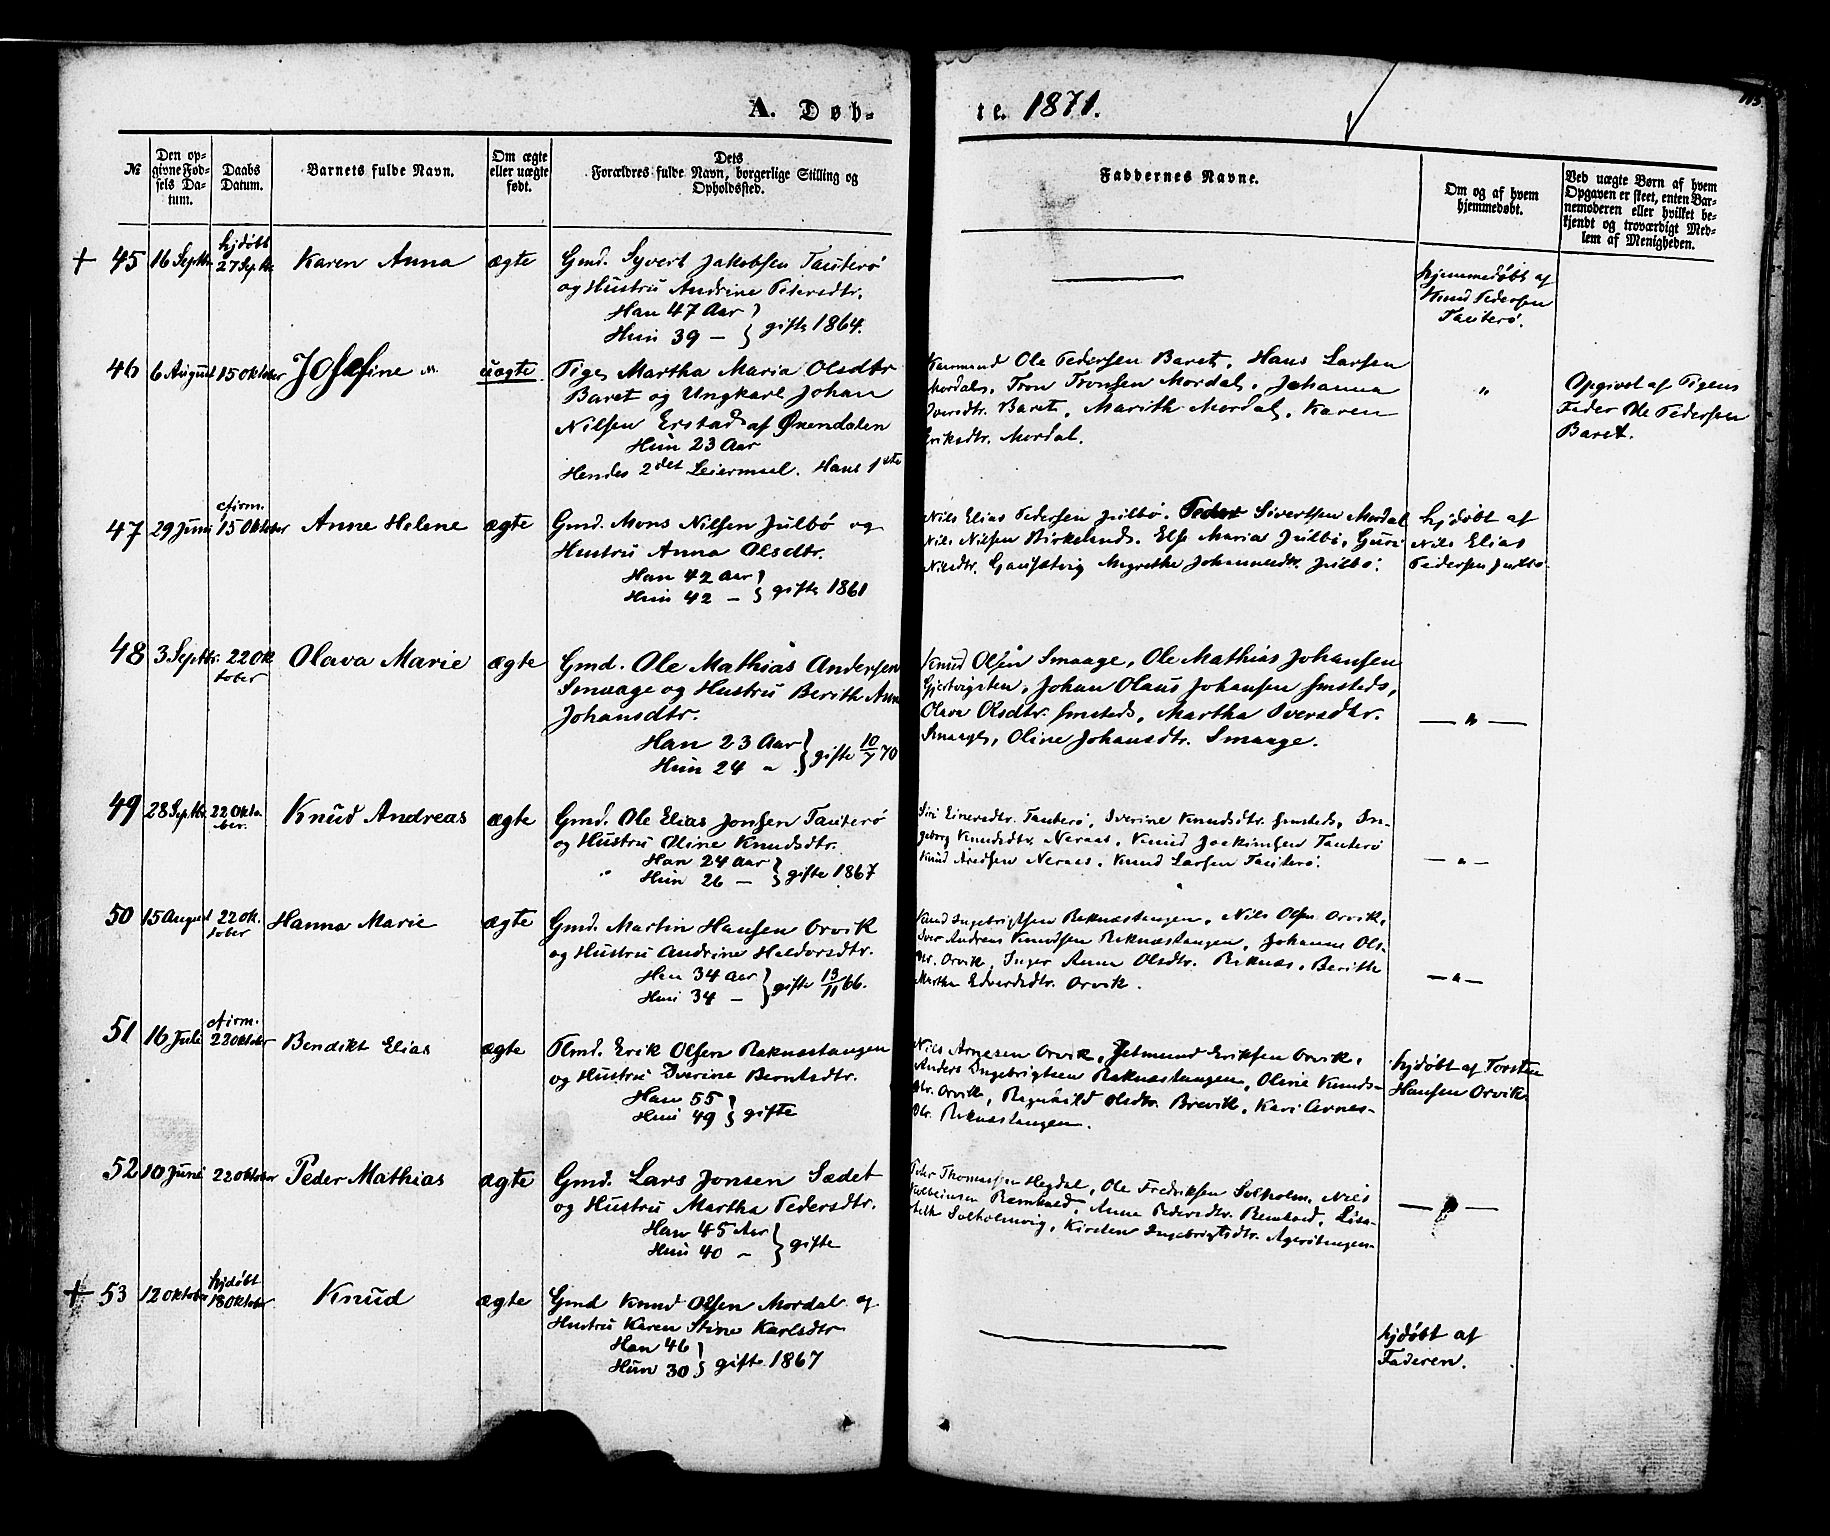 A. Døb-
te. 1871.
№
Den op-
givne Fød-
sels Da-
tum.
Daabs
Datum.
Barnets fulde Navn.
Om ægte
eller uægte
født.
Dets
Forældres fulde Navn, borgerlige Stilling og
Opholdssted.
Faddernes Navne.
Om og af hvem
hjemmedøbt.
Ved uægte Børn af hvem
Opgaven er skeet, enten Bar-
nemoderen eller hvilket be-
kjendt og troværdigt Med-
lem af Menigheden.
+ 45 16 Septbr hjdøbt
27 Septbr Karen Anna ægte
Gmd. Syvert Jakobsen Tauterø
og Hustru Andrine Pedersdtr.
Han 47 Aar }
Hun 39 — } gifte 1864.
hjemmedøbt af
Knud Pedersen
Tauterø.
46 6 August 15 Oktober Josefine uægte
Pige Martha Maria Olsdtr
Baret og Ungkarl Johan
Nilsen Erstad af Øxendalen
Hun 23 Aar
Hendes 2det Leiermaal. Hans 1ste
Kaarmand Ole Pedersen Baret, Hans Larsen
Mordal, Tron Tronsen Mordal, Johanna
Iversdtr. Baret, Marith Mordal, Karen
Eriksdtr. Mordal.
"
Opgivet af Pigens
Fader Ole Pedersen
Baret.
47 29 Juni Afirm.
15 Oktober Anne Helene ægte
Gmd. Mons Nilsen Julbø og
Hustru Anna Olsdtr.
Han 42 Aar }
Hun 42 — } gifte 1861
Nils Elias Pedersen Julbø. Peder Sivertsen Mordal
Nils Nilsen Birkelands. Else Maria Julbø, Guri
Nilsdtr. Gausetvig Margrethe Johannesdtr. Julbø.
hjdøbt af
Nils Elias
Pedersen Julbø.
48 3 Septbr. 22 Ok
tober Olava Marie ægte
Gmd. Ole Mathias Andersen
Smaage og Hustru Berith Anna
Johansdtr.
Han 23 Aar }
Hun 24 " } gifte 10/7 70
Knud Olsen Smaage, Ole Mathias Johansen
Johan Olaus Johansen
Olava Olsdtr. Martha Iversdtr.
Smaage, Oline Johansdtr. Smaage.
— " —
49 28 Septbr. 22 Okto-
ber. Knud Andreas ægte
Gmd. Ole Elias Jonsen Tauterø
og Hustru Oline Knudsdtr.
Han 24 Aar }
" Hun 26 — } gifte 1867
Siri Einersdtr. Tauterø, Iverine Knudsdtr. In-
geborg Knudsdtr. Neraas, Knud Joakimsen Tauterø
Knud Neraas, Knud Larsen Tauterø.
— " —
50 15 August 22 Ok.
tober Hanna Marie ægte
Gmd. Martin Hansen Orvik
og Hustru Andrine Haldorsdtr.
Han 34 Aar }
Hun 34 — } gifte 13/11 66.
Knud Ingebrigtsen Reknæstangen, Nils Olsen Orvik,
Iver Andreas Knudsen Reknæstangen, Johanne Ols-
dtr. Orvik, Inger Anna Olsdtr. Reknæs, Berith
Martha Edvardsdtr. Orvik.
— " —
51 16 Juli Afirm.
22 Oktober Bendikt Elias ægte
Plmd. Erik Olsen Reknæstangen
og Hustru Iverine Berntsdtr.
Han 55 }
Hun 49 } gifte
Nils Arnesen Orvik, Jetmund Eriksen Orvik,
Anders Ingebrigtsen Reknæstangen, Oline Knuds-
dtr. Orvik, Ragnhild Olsdtr. Brevik, Kari Arnes-
dtr. Reknæstangen.
hjdøbt af Torsten
Hansen Orvik.
52 10 Juni 22 Oktober Peder Mathias ægte
Gmd. Lars Jonsen Sædet
og Hustru Martha Pedersdtr.
Han 45 Aar }
Hun 40 " } gifte
Peder Thomassen Hegdal, Ole Fredriksen Solholm, Nils
Kolbeinsen Anna Pedersdtr. Lisa-
beth Solholmvig, Kirsten Ingebrigtsdtr.
— " —
+ 53 12 Oktober hjdøbt
18 Oktober Knud ægte
Gmd Knud Olsen Mordal og
Hustru Karen Stine Karlsdtr
Han 46 }
Hun 30 } gifte 1867
hjdøbt af
Faderen.